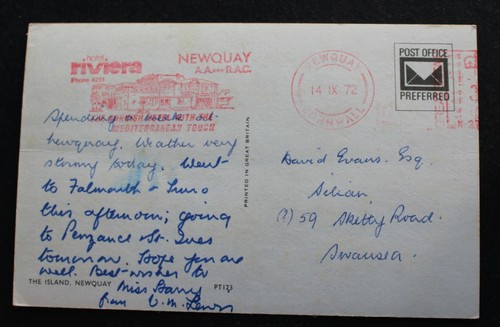 hotel
riviera
Phone 4251
NEWQUAY
A.A.*** R.A.C.
A CORNISH HOTEL WITH THE
MEDITERRANEAN TOUCH
NEWQUAY
14 IX 72
CORNWALL
POST OFFICE
PREFERRED
Spending a week at
Newquay. Weather very
stormy today. Went
to Falmouth - Truro
this afternoon; going
to Penzance & St. Ives
tomorrow. Hope you are
well. Best-wishes to
Miss Barry
from V. M. Lewis
THE ISLAND, NEWQUAY
PT123
PRINTED IN GREAT BRITAIN
David Evans. Esq.
Silian,
(?) 59 Sketty Road.
Swansea.